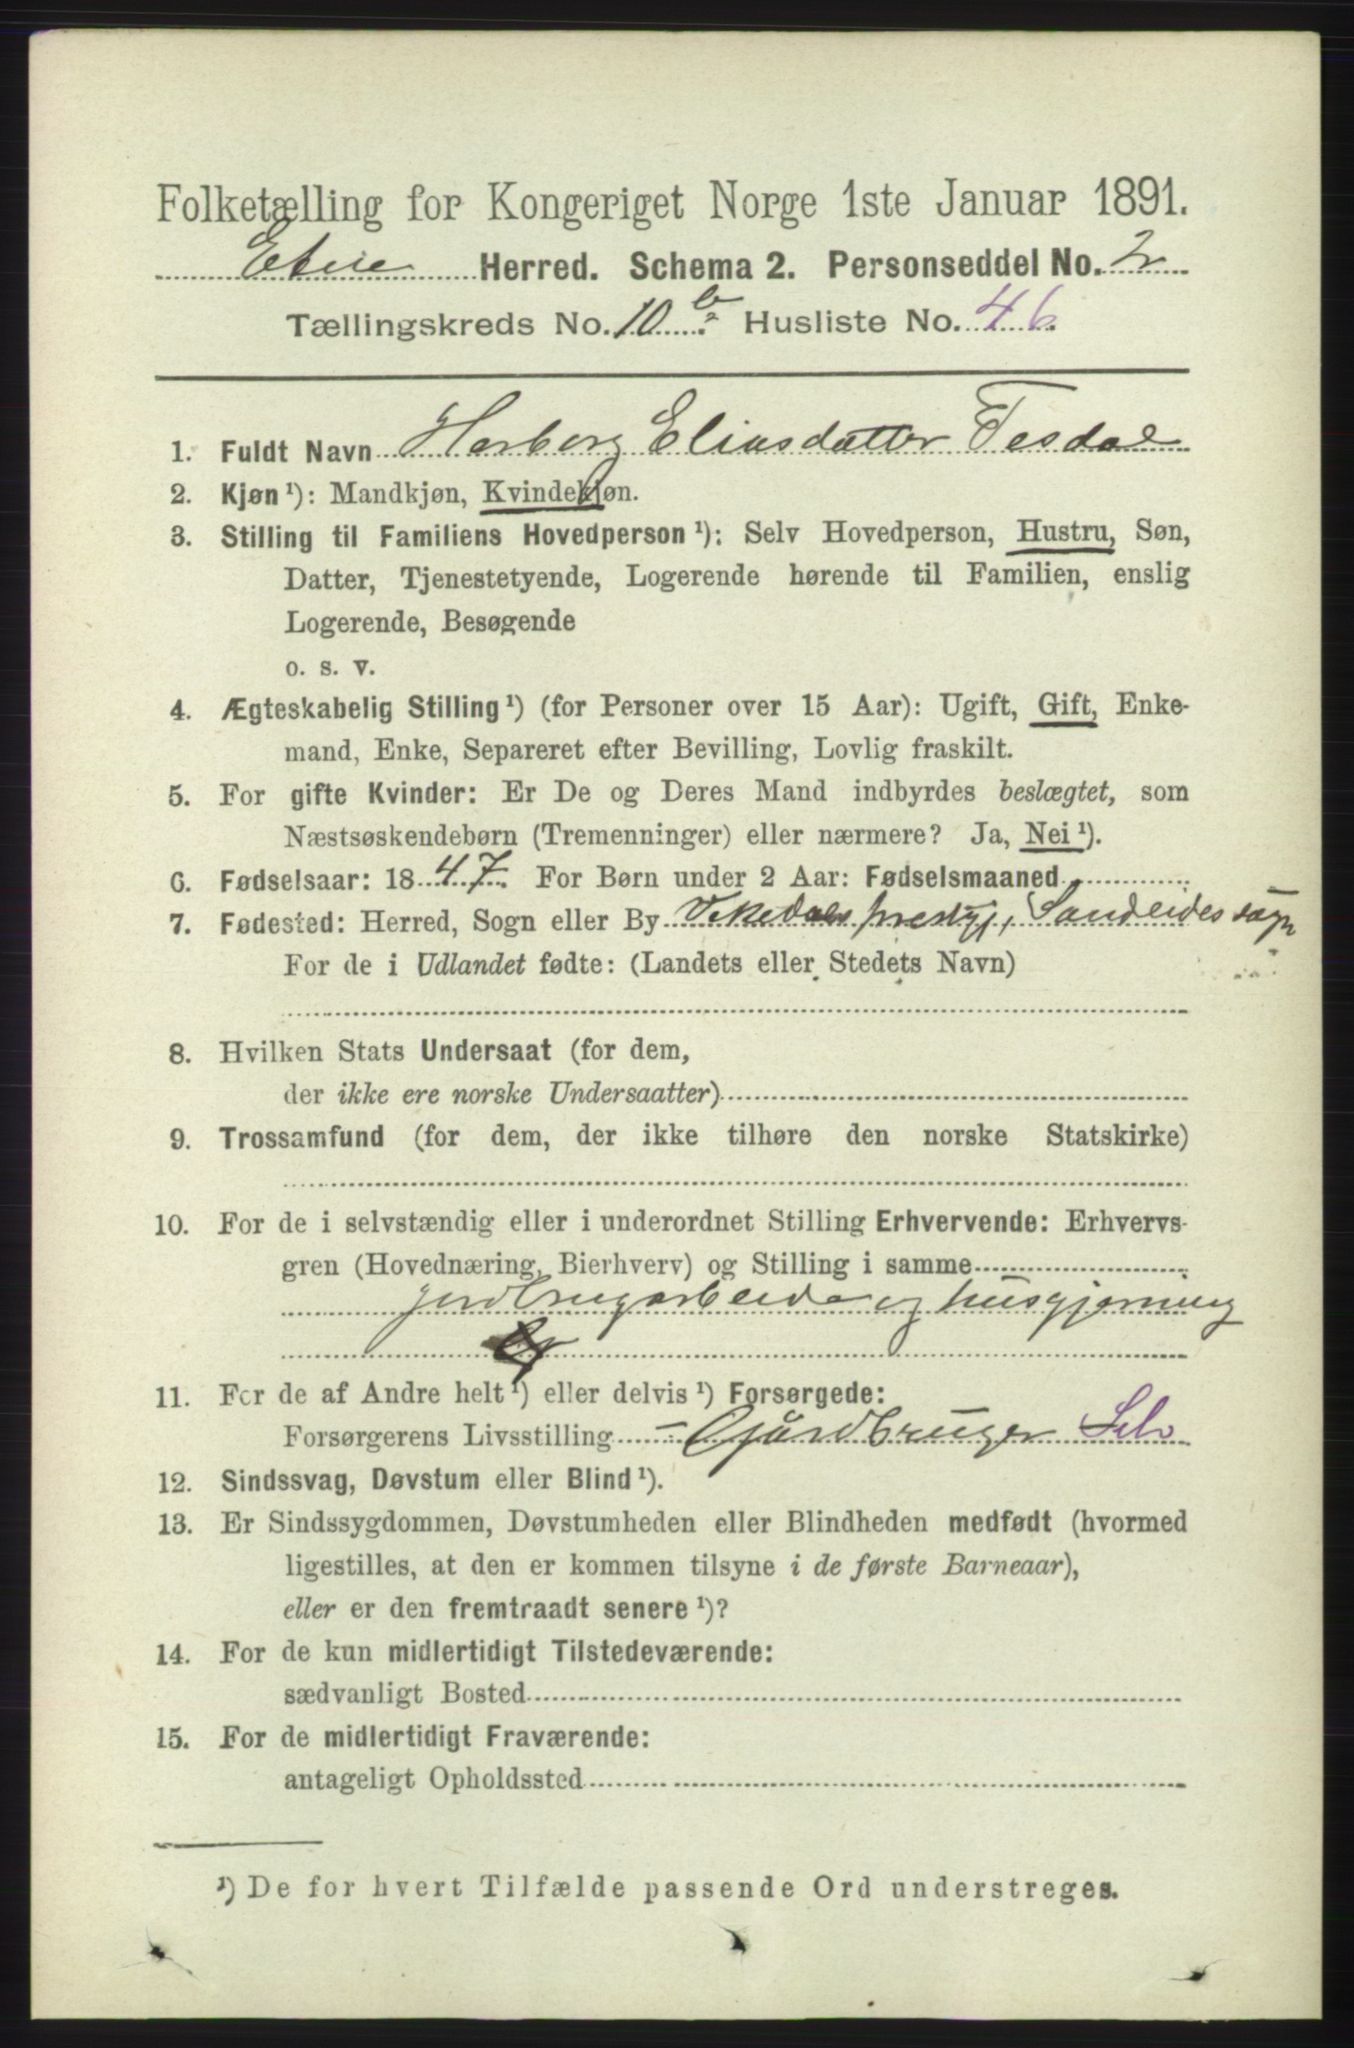 Folketælling for Kongeriget Norge 1ste Januar 1891.
Etne Herred. Schema 2. Personseddel No. 2
Tællingskreds No. 10 b. Husliste No. 46.
1. Fuldt Navn Herborg Eliasdatter Tesdal
2. Kjøn ¹): Mandkjøn, Kvindekjøn.
3. Stilling til Familiens Hovedperson ¹): Selv Hovedperson, Hustru, Søn,
Datter, Tjenestetyende, Logerende hørende til Familien, enslig
Logerende, Besøgende
o. s. v.
4. Ægteskabelig Stilling ¹) (for Personer over 15 Aar): Ugift, Gift, Enke-
mand, Enke, Separeret efter Bevilling, Lovlig fraskilt.
5. For gifte Kvinder: Er De og Deres Mand indbyrdes beslægtet, som
Næstsøskendebørn (Tremenninger) eller nærmere? Ja, Nei ¹).
6. Fødselsaar: 1847. For Børn under 2 Aar: Fødselsmaaned
7. Fødested: Herred, Sogn eller By Vikedals prestgj, Sandeides sogn
For de i Udlandet fødte: (Landets eller Stedets Navn)
8. Hvilken Stats Undersaat (for dem,
der ikke ere norske Undersaatter)
9. Trossamfund (for dem, der ikke tilhøre den norske Statskirke)
10. For de i selvstændig eller i underordnet Stilling Erhvervende: Erhvervs-
gren (Hovednæring, Bierhverv) og Stilling i samme
jordbrugarbeide og husgjerning
11. For de af Andre helt ¹) eller delvis ¹) Forsørgede:
Forsørgerens Livsstilling - Gårdbruger Selv
12. Sindssvag, Døvstum eller Blind ¹).
13. Er Sindssygdommen, Døvstumheden eller Blindheden medfødt (hvormed
ligestilles, at den er kommen tilsyne i de første Barneaar),
eller er den fremtraadt senere ¹)?
14. For de kun midlertidigt Tilstedeværende:
sædvanligt Bosted
15. For de midlertidigt Fraværende:
antageligt Opholdssted
¹) De for hvert Tilfælde passende Ord understreges.